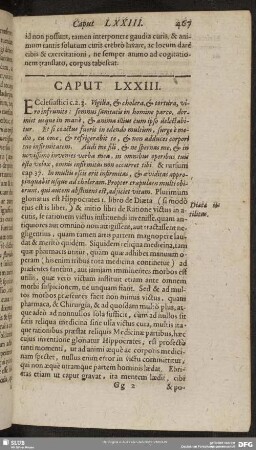 Caput LXXIII. 467
id non possunt, tamen interponere gaudia curis, & ani-
mum tantis solutum curis crebrò lavare, ac locum dare
cibis & exercitationi, ne semper animo ad cogitatio-
nem translato, corpus tabescat.
CAPUT LXXIII.
Ecclesiastici c.2.3. Vigilia, & cholera, & tortura, vi-
ro infrunito: somnus sanitatis in homine parco. dor-
miet usque in manè, & anima illius cum ipso delectabi-
tur. Et si coactus fueris in edendo multum, surge è me-
dio, ea vome, & refrigerabit te, & non adduces corpori
tuo infirmitatem. Audi me fili, & ne spernas me, & in
novissimo invenies verba mea. in omnibus operibus tuis
esto velox, omnis infirmitas non occurret tibi. & rursum
cap 37. In multis escis erit infirmitas, & aviditas appro-
pinquabit usque ad choleram. Propter crapulam multi obi-
erunt. qui autem abstinens est, adjiciet vitam. Plurimùm
gloriatur est Hippocrates 1. libro de Diæta (si modò
ejus est is liber,) & initio libri de Ratione victus in a-
cutis, se rationem victus instituendi invenisse, quam anti-
quiores aut omnino non attigissent, aut tractassent ne-
gligentius, quam tamen artis partem magnopere laudat
& meritò quidem. Siquidem reliqua medicina, tam
quæ pharmacis utitur, quàm quæ manibus adhibet
operam (his enim tribus tota medicina continetur) ad
præsentes sanitati, aut jamjam imminentes morbos est
utilis, quæ verò victum instituit etiam ante omnem
morbi suspicionem, ne unquam fiant. Sed & ad mul-
tos morbos præsentes facit non minus victus, quàm
pharmaca, & Chirurgia, & ad quosdam multò plus, at-
que adeò ad nonnullos sola sufficit, cùm ad nullos sit
satis reliqua medicina sine usu victus cura, multis ita-
que rationibus præstat reliquis Medicinæ partibus, hæc
cujus inventione gloriatur Hippocrates, est profectò
tanti momenti, ut ad animi æquè ac corporis medici-
nam spectet, nullus enim error est ab officio victus,
qui non æquè utramque partem hominis lædat. Ebri-
etas etiam ut caput gravat, ita mentem lædit, cibi
Diæta u-
tilitas.
Gg 2 & po-
SLUB
DFG